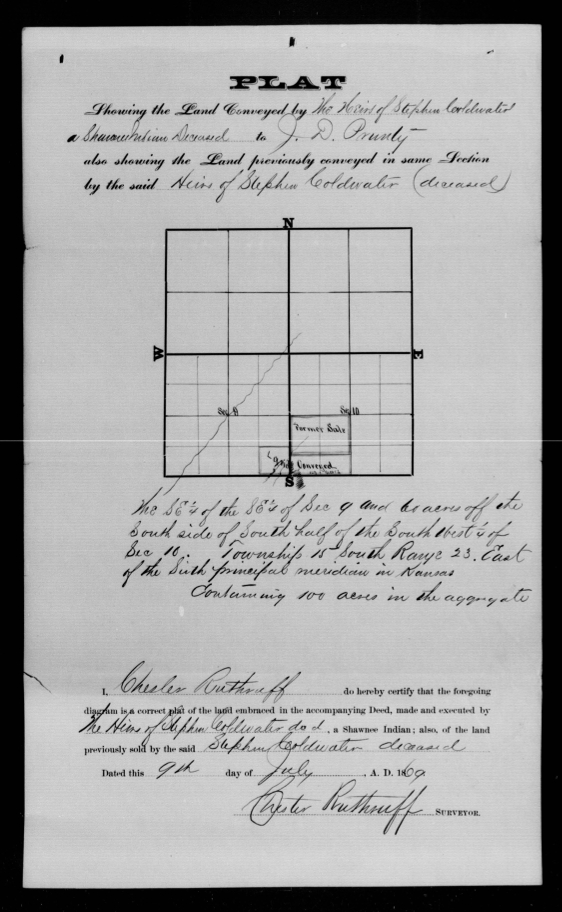 PLAT
Showing the Land Conveyed by The Heirs of Stephen Coldwater
a Shawnee Indian Deceased to J. D. Prunty
also showing the Land previously conveyed in same Section
by the said Heirs of Stephen Coldwater (deceased)
N
W
E
Sec 9
Sec 10
Former Sale
Land
Conveyed
S
The SE ¼ of the SE ¼ of Sec 9 and 60 acres off the
South side of South half of the South West ¼ of
Sec 10. Township 15 South Range 23. East
of the Sixth principal meridian in Kansas
Containing 100 acres in the aggregate
I, Chester Ruthruff do hereby certify that the foregoing
diagram is a correct plat of the land embraced in the accompanying Deed, made and executed by
The Heirs of Stephen Coldwater decd, a Shawnee Indian; also, of the land
previously sold by the said Stephen Coldwater deceased
Dated this 9th day of July, A. D. 1869
Chester Ruthruff SURVEYOR.